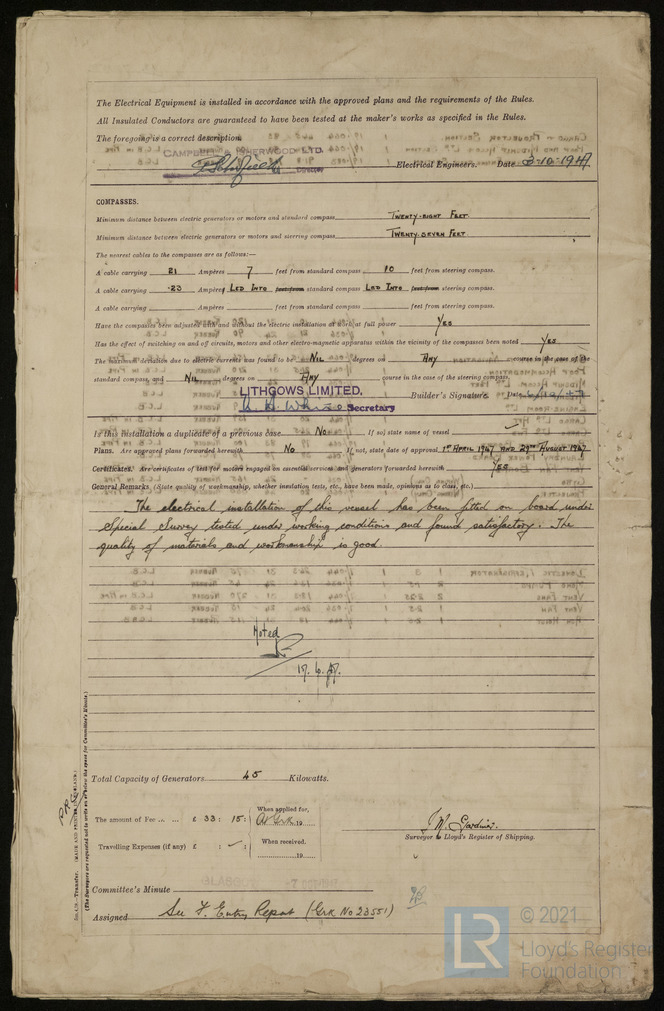 The Electrical Equipment is installed in accordance with the approved plans and the requirements of the Rules.
All Insulated Conductors are guaranteed to have been tested at the maker's works as specified in the Rules.
The foregoing is a correct description.
CAMPBELL & ISHERWOOD LTD.
Director Electrical Engineers. Date 3-10-1947
COMPASSES.
Minimum distance between electric generators or motors and standard compass TWENTY-EIGHT FEET
Minimum distance between electric generators or motors and steering compass TWENTY-SEVEN FEET
The nearest cables to the compasses are as follows:—
A cable carrying 21 Ampères 7 feet from standard compass 10 feet from steering compass.
A cable carrying .23 Ampères LED INTO feet from standard compass LED INTO feet from steering compass.
A cable carrying Ampères feet from standard compass feet from steering compass.
Have the compasses been adjusted with and without the electric installation at work at full power YES
Has the effect of switching on and off circuits, motors and other electro-magnetic apparatus within the vicinity of the compasses been noted YES
The maximum deviation due to electric currents was found to be NIL degrees on ANY course in the case of the
standard compass, and NIL degrees on ANY course in the case of the steering compass.
LITHGOWS LIMITED.
Secretary Builder's Signature. Date
Is this installation a duplicate of a previous case No If so, state name of vessel
Plans. Are approved plans forwarded herewith No If not, state date of approval 1ST APRIL 1947 AND 29TH AUGUST 1947
Certificates. Are certificates of test for motors engaged on essential services and generators forwarded herewith YES
General Remarks (State quality of workmanship, whether insulation tests, etc., have been made, opinions as to class, etc.)
The electrical installation of this vessel has been fitted on board under
Special Survey tested under working conditions and found satisfactory. The
quality of materials and workmanship is good.
Noted
Total Capacity of Generators 45 Kilowatts.
The amount of Fee ... ... £ 33 : 15 : When applied for, 19
Travelling Expenses (if any) £ : — : When received, 19
J.M. Gardner.
Surveyor to Lloyd's Register of Shipping.
Committee's Minute
Assigned See F. Entry Report (Grk No 23551)
(The Surveyors are requested not to write on or below the space for Committee's Minute.)
LR
© 2021
Lloyd's Register
Foundation